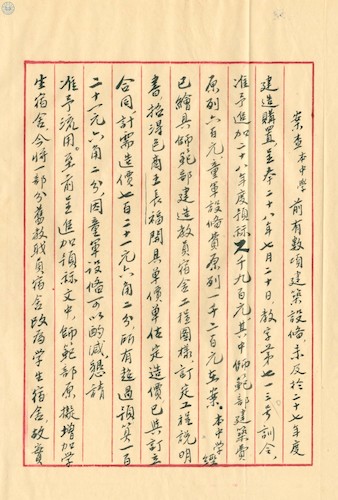 案查本中學前有數項建築設備未及於二十七年度
建造購置呈奉二十八年七月二十日教字第七一三号訓令
准予追加二十八年度預祘又千九百元其中師範部建築費
原列六百元童軍設備費原列一千二百元在案本中學經
已繪具師範部建造教員宿舍工程圖樣訂定工程說明
書招得已商王長福開具單價單估定造價已與訂立
合同計需造價七百二十一元六角二分所有超過預算一百
二十一元六角二分因童軍設備可以酌減懇請
准予流用至前呈追加預祘文中師範部原擬增加學
生宿舍今將部分舊教職員宿舍改為學生宿舍故實